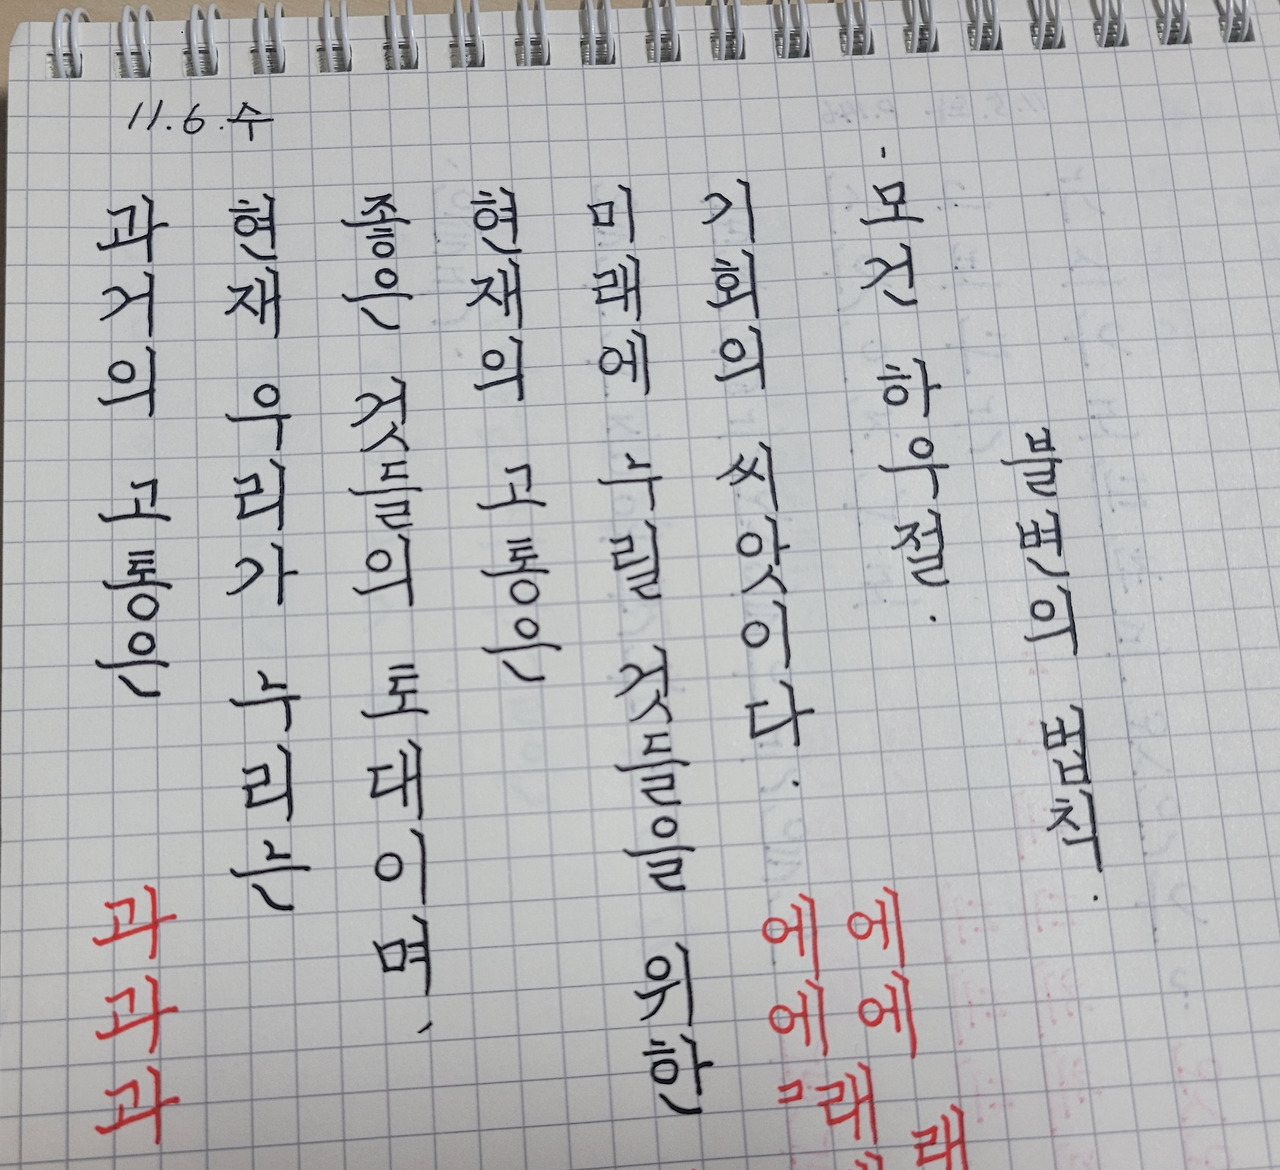 11.6.수
과거의 고통은
현재 우리가 누리는
좋은 것들의 토대이며,
현재의 고통은
미래에 누릴 것들을 위한
기회의 씨앗이다.
- 모건 하우절.
불변의 법칙.
과 과 과
에 에 미래
에 에 래